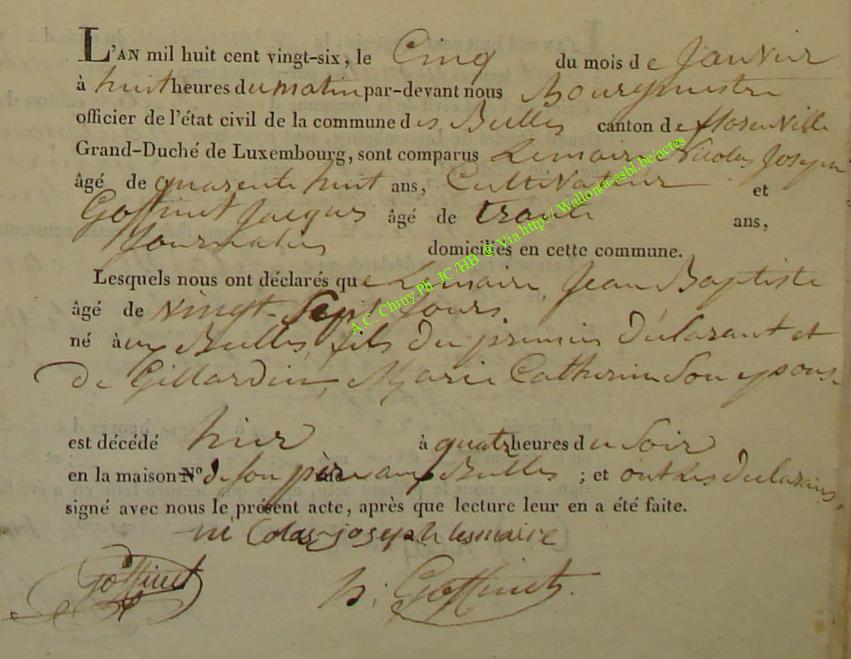 L'AN mil huit cent vingt-six, le Cinq du mois de Janvier
à huit heures du matin par-devant nous Bourgmestre
officier de l'état civil de la commune des Bulles canton de florenville
Grand-Duché de Luxembourg, sont comparus Lemaire Nicolas Joseph
âgé de quarente huit ans, Cultivateur et
Goffinet Jacques âgé de trante ans,
Journalier domiciliés en cette commune.
Lesquels nous ont déclarés que Lemaire, Jean Baptiste
âgé de vingt-Sept Jours.
né aux Bulles, fils du premier déclarant et
de Gillardin, Marie Catherine Son epouse
est décédé hier à quatre heures du Soir
en la maison N° de Son père aux Bulles ; et ont les declarans,
signé avec nous le présent acte, après que lecture leur en a été faite.
ni Colas-joseph lemaire
Goffinet h: Goffinet.
A.C. Chiny Ph. JC /HB @ Via http://Wallonia-asbl.be/actes